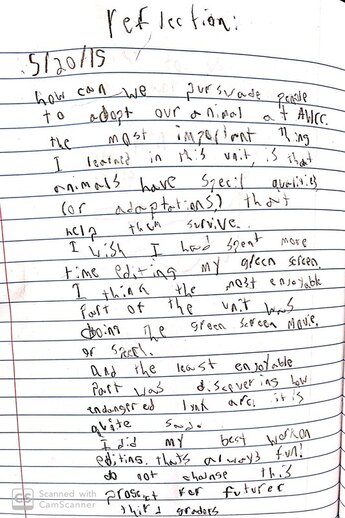 reflection:
5/20/15
how can we pursvade people
to adopt our animal at AWCC.
the most important thing
I learned in this unit, is that
animals have specil qualities
(or adaptations) that
help them survive.
I wish I had spent more
time editing my green screen
I think the most enjoyable
Part of the unit was
doing the green screen movie.
or
And the least enjoyable
Part was discovering how
endangered lynx are. it is
quite sad.
I did my best work on
editing. thats always fun!
do not change this
project for futurer
third graders
CS Scanned with
CamScanner